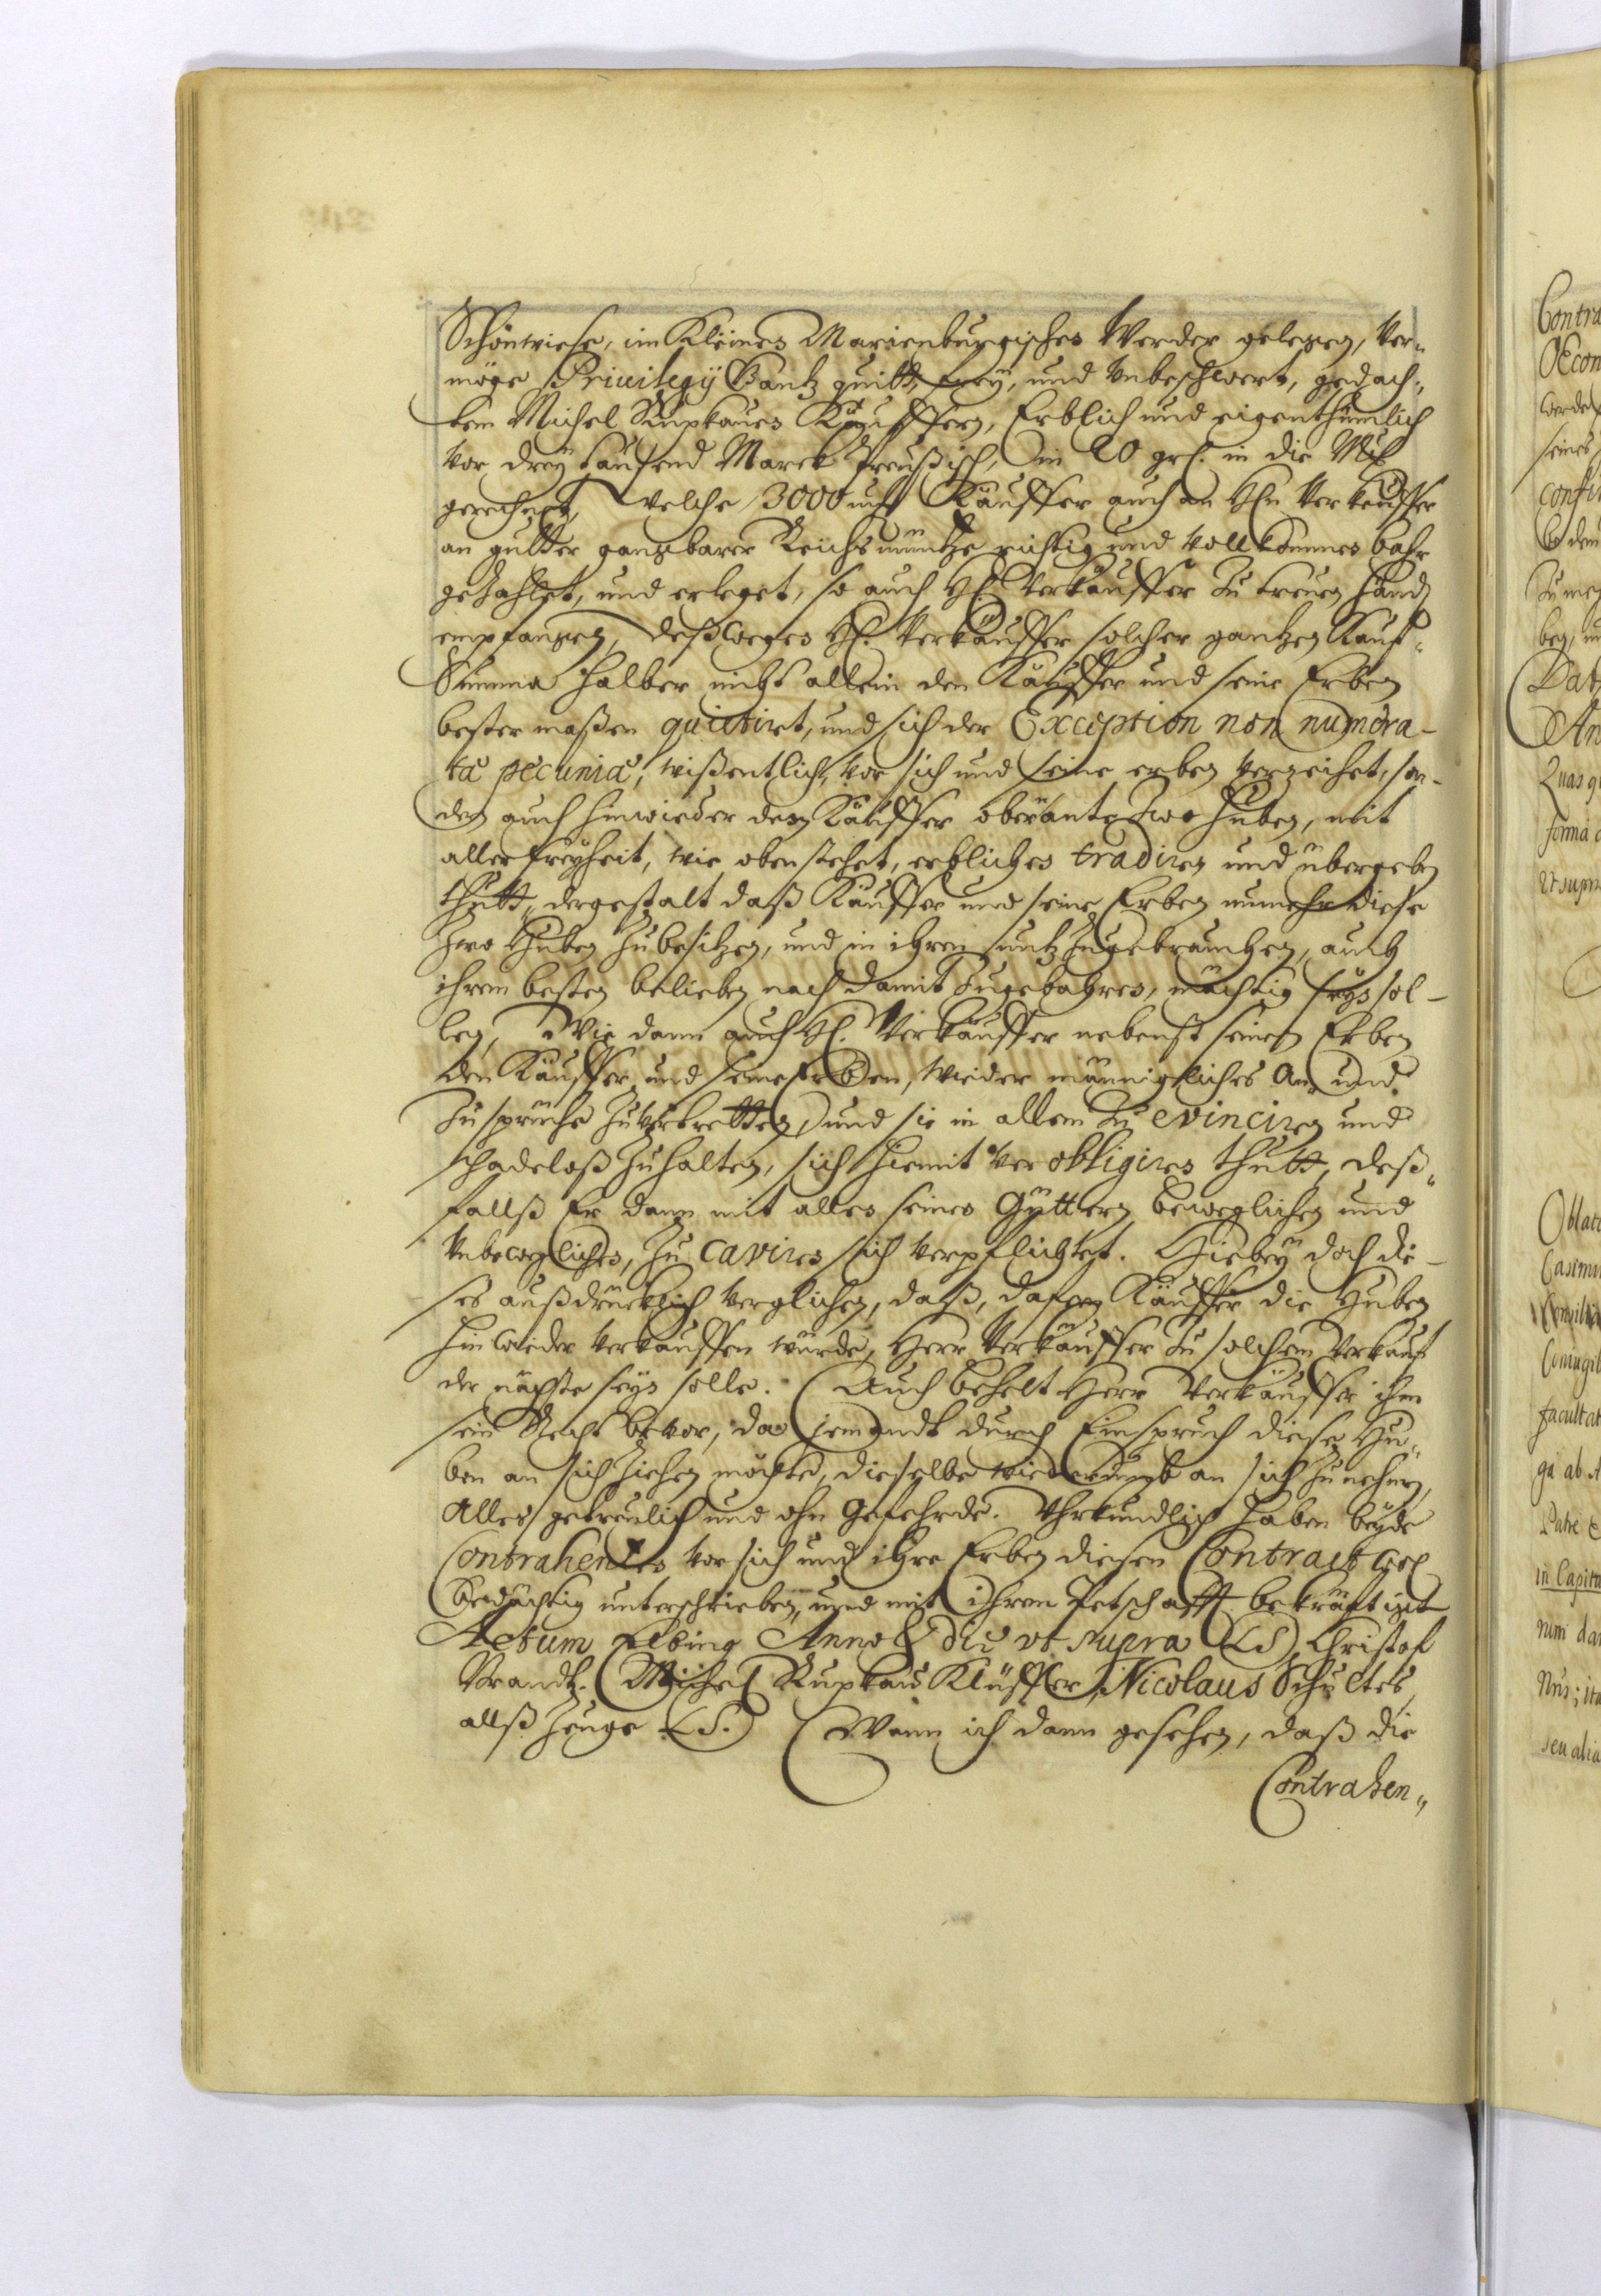 Schönwiese, im Kleinen Marienburgischen Werder gelegen, Ver„
möge Priuilegÿ Gantz quitt, freÿ, und Unbeschwert, gedach„
tem Michel Rupkauen Käuffern, Erblich und eigenthümlich
vor dreÿ tausend Marck Preußisch, in 20 grl. in die Mk
gerechnet, welche 3000 mk Käuffer auch an Hn Verkäuffer
an gutter gangbarer Reichs müntze richtig und vollkommen bahr
gezahlet, und erleget, so auch H. Verkäuffer zu treuen hand
empfangen, deßwegen H. Verkäuffer solcher gantzen Kauf„
Summa halber nicht allein den Käuffer und seine Erben
bester maßen quittiret, und sich der Exception non numera-
tæ pecuniæ, wißentlich, vor sich und seine erben verzeihet, son-
dern auch hinwieder dem Käuffer oberante zwo huben, mit
aller freÿheit, wie oben stehet, erblichen tradiren und übergeben
thutt, dergestalt daß Käuffer und seine Erben nunmehr diese
zwo Huben zubesitzen, und in ihren nutz zugebrauchen, auch
ihrem besten belieben nach damit zugebahren, mächtig seÿn sol-
len, Wie dann auch H. Verkäuffer nebenst seinen Erben
den Käuffer und seine Erben, wieder männigliches An und
Zusprüche zuvertretten, und sie in allem zu evinciren und
schadeloß zuhalten, sich hiemit verobligiren thutt, deß„
fallß Er dann mit allen seinen Güttern, beweglichen und
Unbeweglichen, zu caviren sich verpflichtet. Hiebeÿ doch die-
ses außdrücklich verglichen, daß, dafern Käuffer die Huben
hinwieder verkauffen würde, Herr Verkäuffer zu solchem Verkauf
der nächste seÿn solle. Auch behelt Herr Verkäuffer ihm
sein Recht bevor, da jemandt durch Einspruch diese Hu„
ben an sich ziehen möchte, dieselbe wiederumb an sich zunehmen,
Alles getreulich und ohn Gefehrde. Uhrkundlich haben beÿde
Contrahenten vor sich und ihre Erben diesen Contract wol
bedächtig unterschrieben, und mit ihrem Petschafft bekräftiget
Actum Elbing Anno & die vt supra (LS) Christof
Brandt. Michel Rupkau Käuffer, Nicolaus Schultes
allß Zeuge (LS.) Wann ich dann gesehen, daß die
Contrahen„